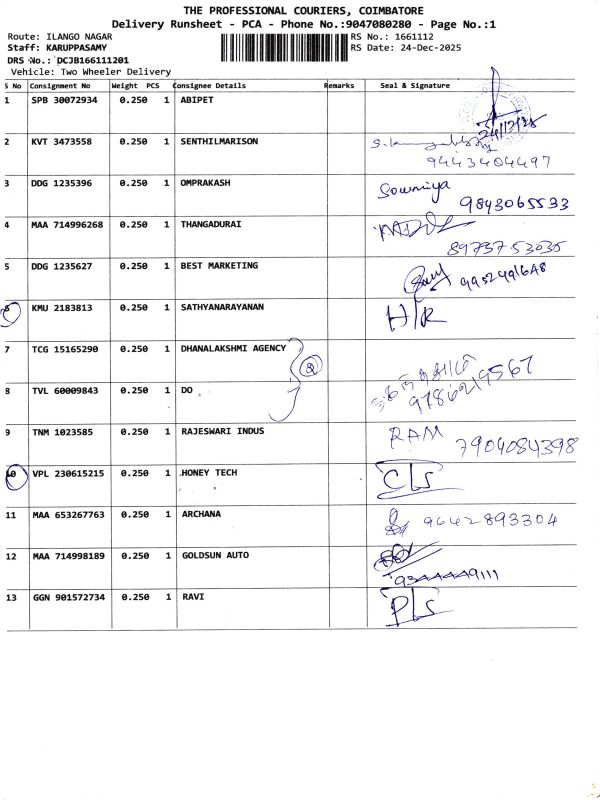 THE PROFESSIONAL COURIERS, COIMBATORE
Delivery Runsheet - PCA - Phone No.:9047080280 - Page No.:1
Route: ILANGO NAGAR RS No.: 1661112
Staff: KARUPPASAMY RS Date: 24-Dec-2025
DRS No.: DCJB166111201
Vehicle: Two Wheeler Delivery
S No Consignment No Weight PCS Consignee Details Remarks Seal & Signature
1 SPB 30072934 0.250 1 ABIPET
2 KVT 3473558 0.250 1 SENTHILMARISON
9443404497
3 DDG 1235396 0.250 1 OMPRAKASH Sowmiya
9843065533
4 MAA 714996268 0.250 1 THANGADURAI
89737 53035
5 DDG 1235627 0.250 1 BEST MARKETING
9952491648
6 KMU 2183813 0.250 1 SATHYANARAYANAN H/R
7 TCG 15165290 0.250 1 DHANALAKSHMI AGENCY
2
8 TVL 60009843 0.250 1 DO 9786219567
9 TNM 1023585 0.250 1 RAJESWARI INDUS RAM
7904084398
10 VPL 230615215 0.250 1 HONEY TECH C/S
11 MAA 653267763 0.250 1 ARCHANA 9642893304
12 MAA 714998189 0.250 1 GOLDSUN AUTO
9344449111
13 GGN 901572734 0.250 1 RAVI P/S